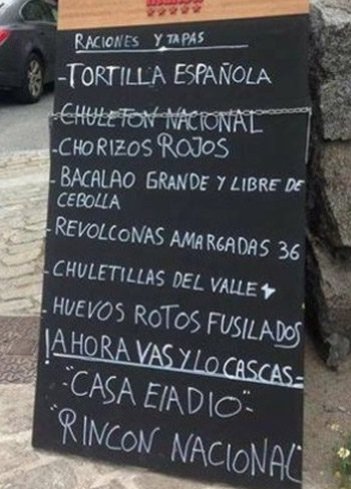 RACIONES Y TAPAS
-TORTILLA ESPAÑOLA
-CHULETON NACIONAL
-CHORIZOS ROJOS
-BACALAO GRANDE Y LIBRE DE
CEBOLLA
-REVOLCONAS AMARGADAS 36
-CHULETILLAS DEL VALLE
-HUEVOS ROTOS FUSILADOS
¡AHORA VAS Y LO CASCAS-
-"CASA ElADIO"-
"RINCON NACIONAL